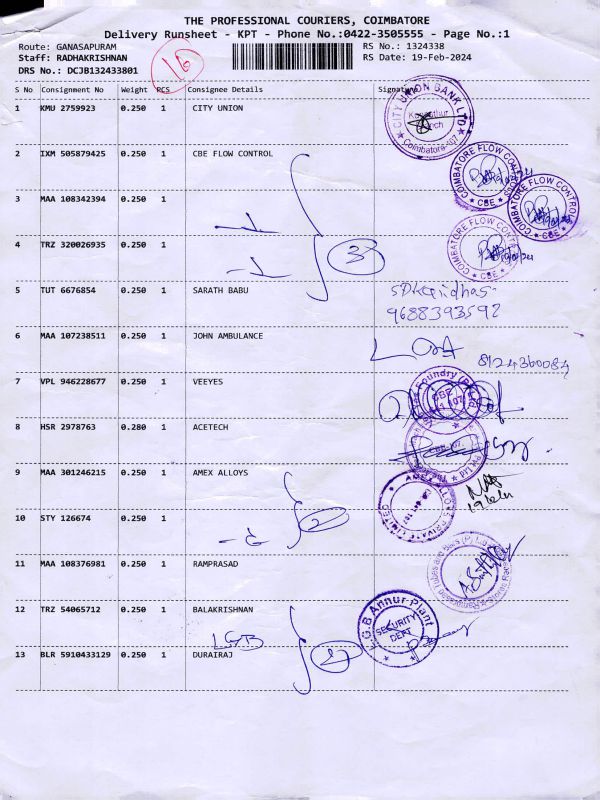 THE PROFESSIONAL COURIERS, COIMBATORE
Delivery Runsheet - KPT - Phone No.:0422-3505555 - Page No.:1
Route: GANASAPURAM
RS No.: 1324338
Staff: RADHAKRISHNAN
RS Date: 19-Feb-2024
DRS No.: DCJB132433801
16
S No Consignment No Weight PCS Consignee Details Signature
1 KMU 2759923 0.250 1 CITY UNION
CITY UNION BANK LTD
Branch
Coimbatore
2 IXM 505879425 0.250 1 CBE FLOW CONTROL
COIMBATORE FLOW CONTROL
CBE
3 MAA 108342394 0.250 1
COIMBATORE FLOW CONTROL
CBE
4 TRZ 320026935 0.250 1
3
COIMBATORE FLOW CONTROL
CBE
5 TUT 6676854 0.250 1 SARATH BABU
9688393592
6 MAA 107238511 0.250 1 JOHN AMBULANCE
8124360084
7 VPL 946228677 0.250 1 VEEYES
Foundry
8 HSR 2978763 0.280 1 ACETECH
9 MAA 301246215 0.250 1 AMEX ALLOYS
AMEX ALLOYS PRIVATE LIMITED
10 STY 126674 0.250 1
2
11 MAA 108376981 0.250 1 RAMPRASAD
12 TRZ 54065712 0.250 1 BALAKRISHNAN
LGB
L.G.B Annur Plant
SECURITY
DEPT
13 BLR 5910433129 0.250 1 DURAIRAJ